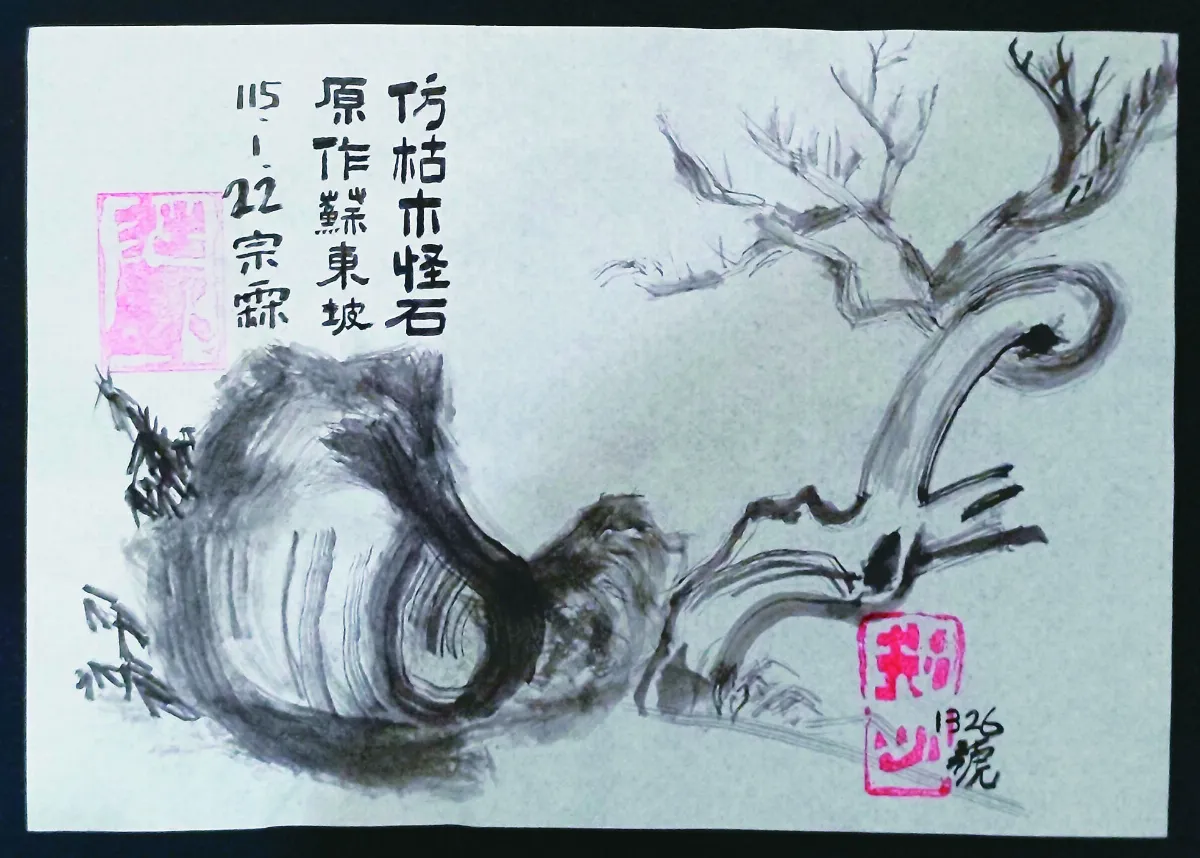 仿枯木怪石
原作蘇東坡
115.1.22宗霖
1326
號